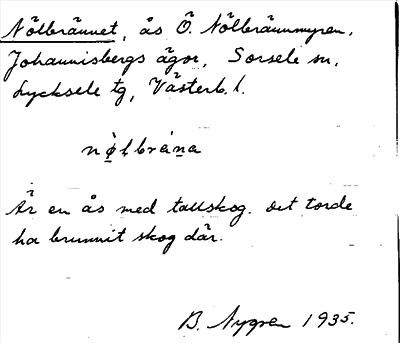 Nölbrännet, ås Ö. Nölbrännmyren,
Johannisbergs ägor, Sorsele sn,
Lycksele tg, Västerb. l.
nø̀lbrána
Är en ås med tallskog. Det torde
ha brunnit skog där.
B. Nygren 1935.